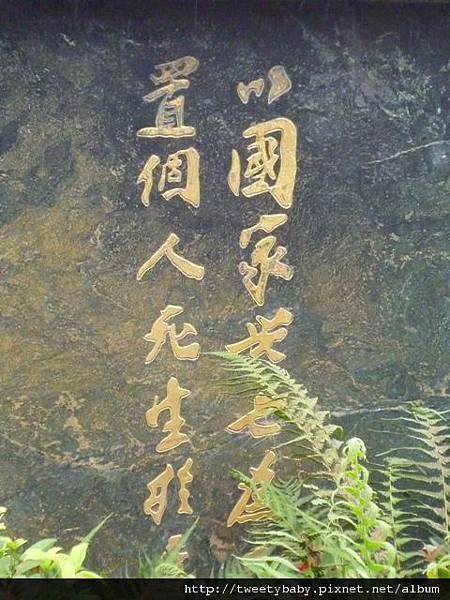 以國家興亡為
置個人死生於
http://tweetybaby.pixnet.net/album